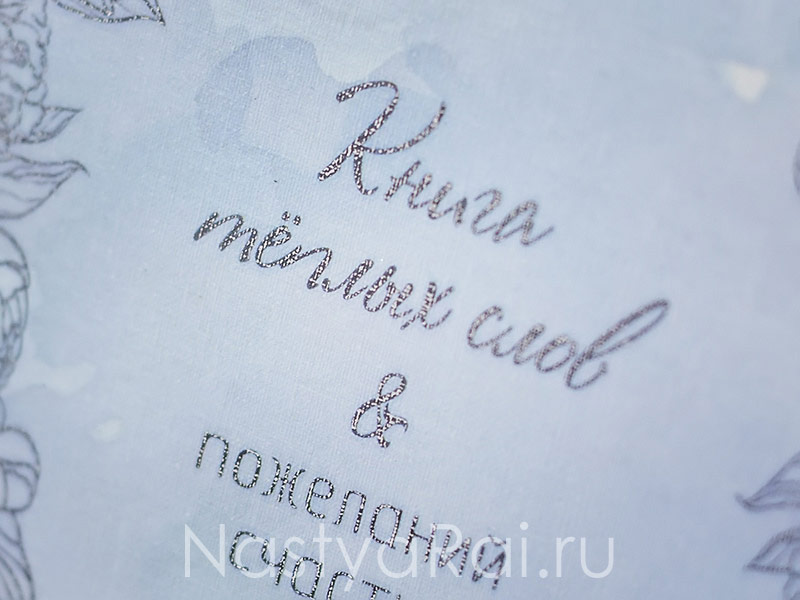 Книга
тёплых слов
&
пожеланий
NastyaRai.ru